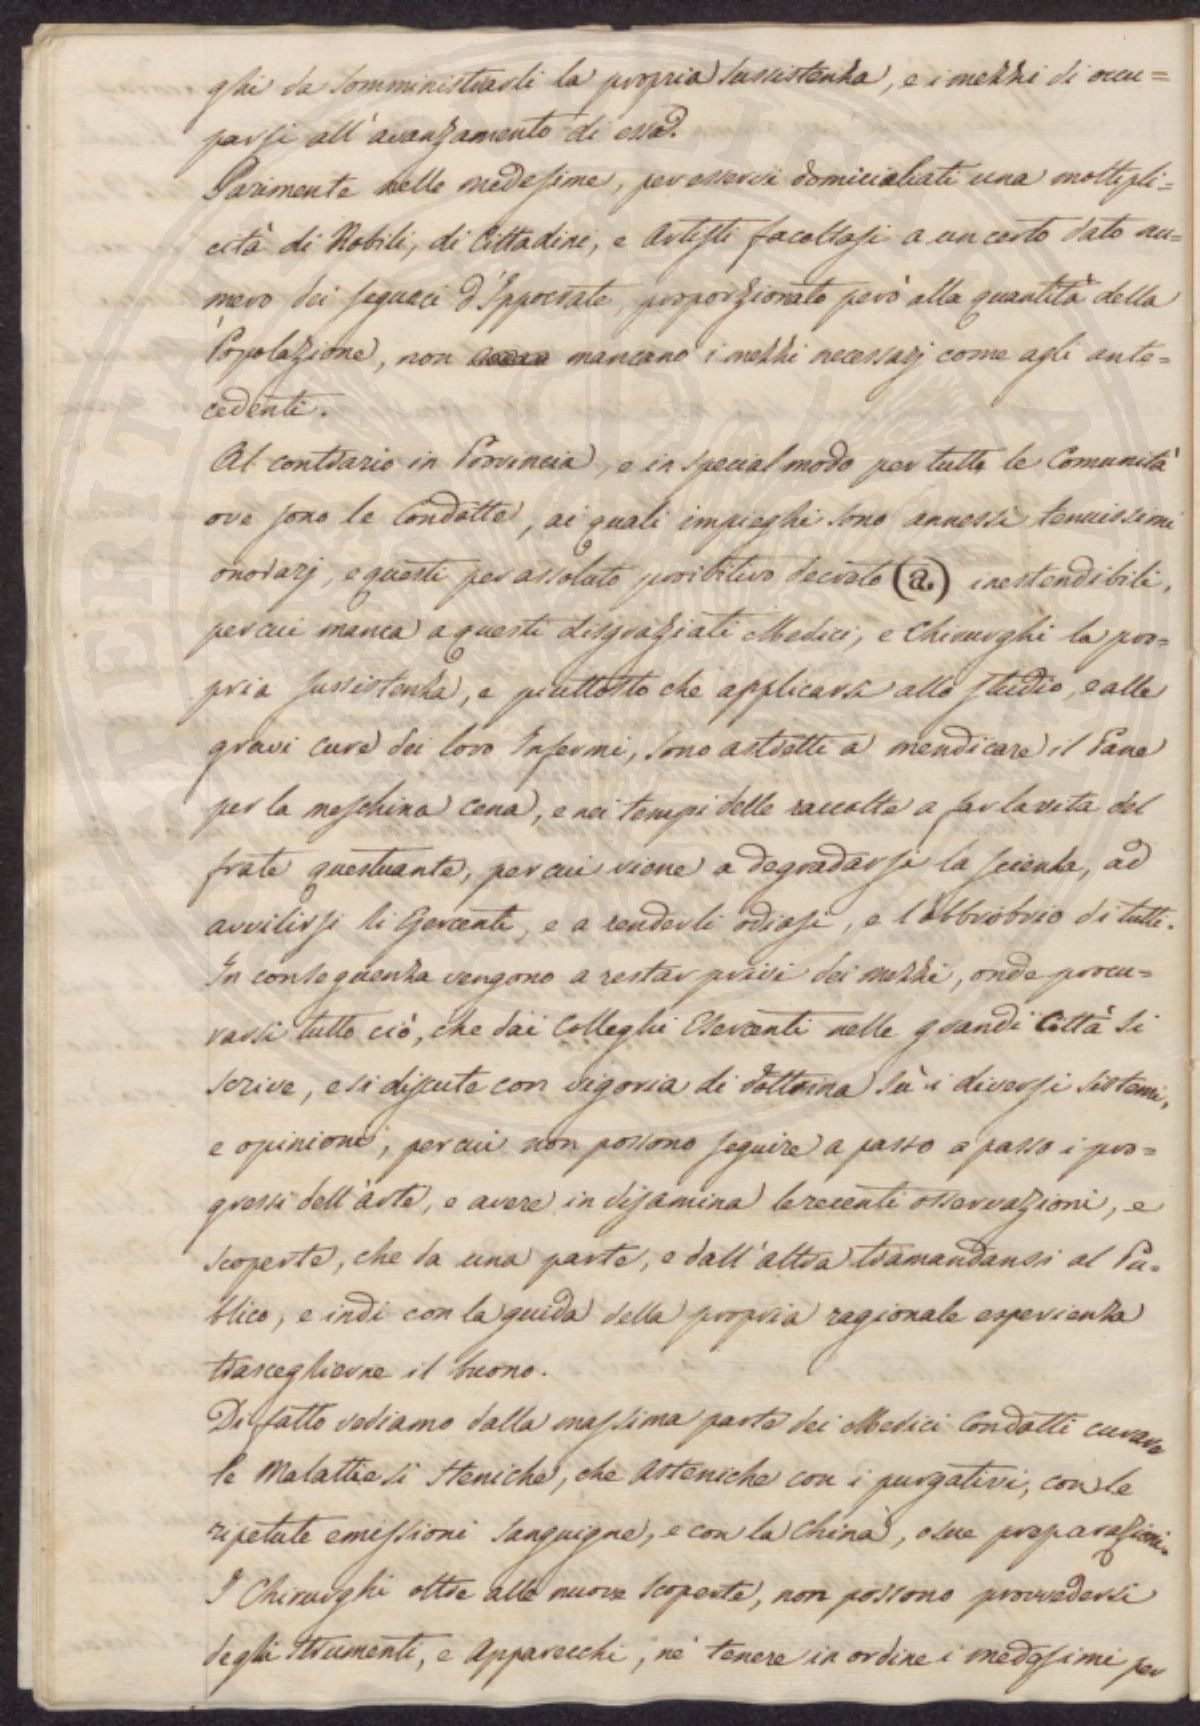 ghi da somministrarli la propria sussistenza, e i mezzi di occu=
parsi all'avanzamento di essa.
Parimente nelle medesime, per esservi domicialiati una moltipli=
cità di Nobili, di Cittadini, e Artisti facoltosi a un certo dato nu=
mero dei seguaci d'Ippocrate, proporzionato però alla quantità della
Popolazione, non mancano i mezzi necessarj come agli ante=
cedenti.
Al contrario in Provincia, e in special modo per tutte le Comunità
ove sono le Condotte, ai quali impieghi sono annessi tenuissimi
onorarj, e questi per assoluto proibitivo decreto (a.) inestendibili,
per cui manca a questi disgraziati Medici, e Chirurghi la pro=
pria sussistenza, e piuttosto che applicarsi allo studio, e alle
gravi cure dei loro Infermi, sono astretti a mendicare il Pane
per la meschina cena, e nei tempi delle raccolte a far la vita del
frate questuante, per cui viene a degradarsi la scienza, ad
avvilirsi li Gercenti, e a renderli odiosi, e l'obbrobrio di tutti.
In conseguenza vengono a restar privi dei mezzi, onde procu=
rarsi tutto ciò, che dai Colleghi Esercenti nelle grandi Città si
scrive, e si discute con vigoria di dottrina sù i diversi sistemi,
e opinioni, per cui non possono seguire a passo a passo i pro=
gressi dell'arte, e avere in disamina le recenti osservazioni, e
scoperte, che da una parte, e dall'altra tramandansi al Pu=
blico, e indi con la guida della propria ragionale esperienza
trasceglierne il buono.
Di fatto vediamo dalla massima parte dei Medici Condotti curare
le Malattie sì steniche, che asteniche con i purgativi, con le
ripetute emissioni sanguigne, e con la China, o sue preparazioni.
I Chirurghi oltre alle nuove scoperte, non possono provvedersi
degli strumenti, e Apparecchi, nè tenere in ordine i medesimi per
PERITALE
PUBLICA